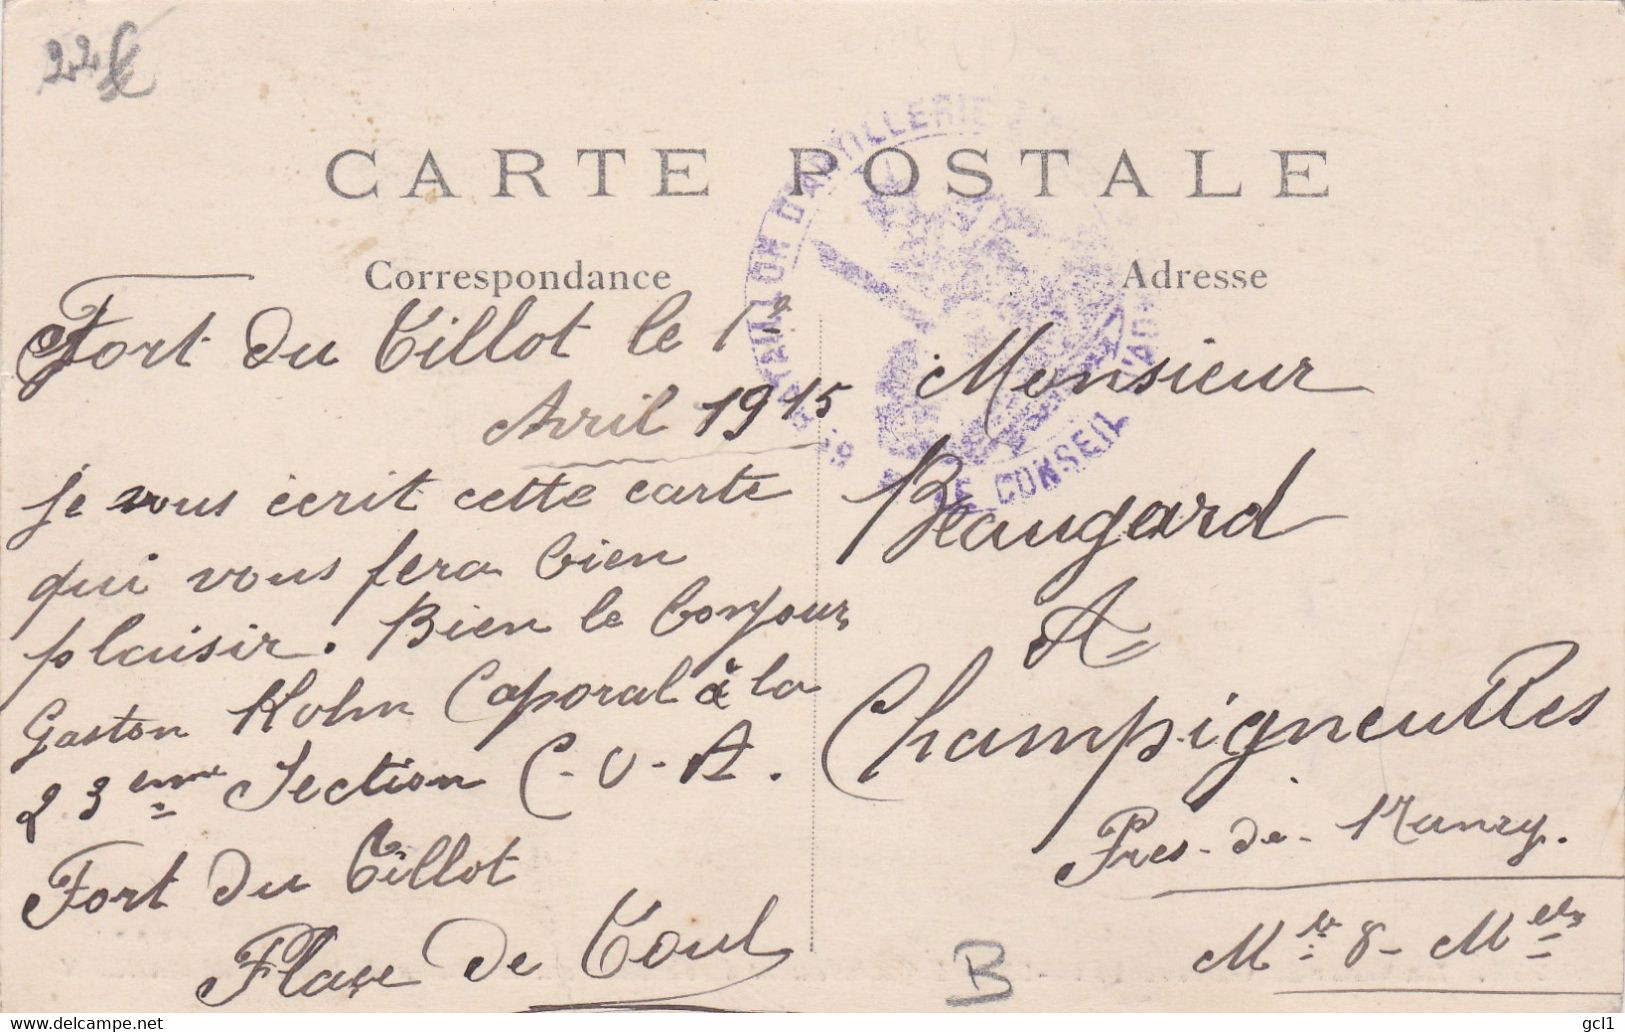 22€
CARTE POSTALE
Correspondance
Adresse
Fort du Tillot le 1er
Avril 1915
je vous écrit cette carte
qui vous fera bien
plaisir. Bien le bonjour
Gaston Kohn Caporal à la
23eme Section C-V-A.
Fort du Tillot
Place de Toul
Monsieur
Beaugard
A
Champigneulles
Pres-de-Nancy.
Mthe 8- Melle
B
D'ARTILLERIE
LE CONSEIL D'AD
delcampe.net
gcl1